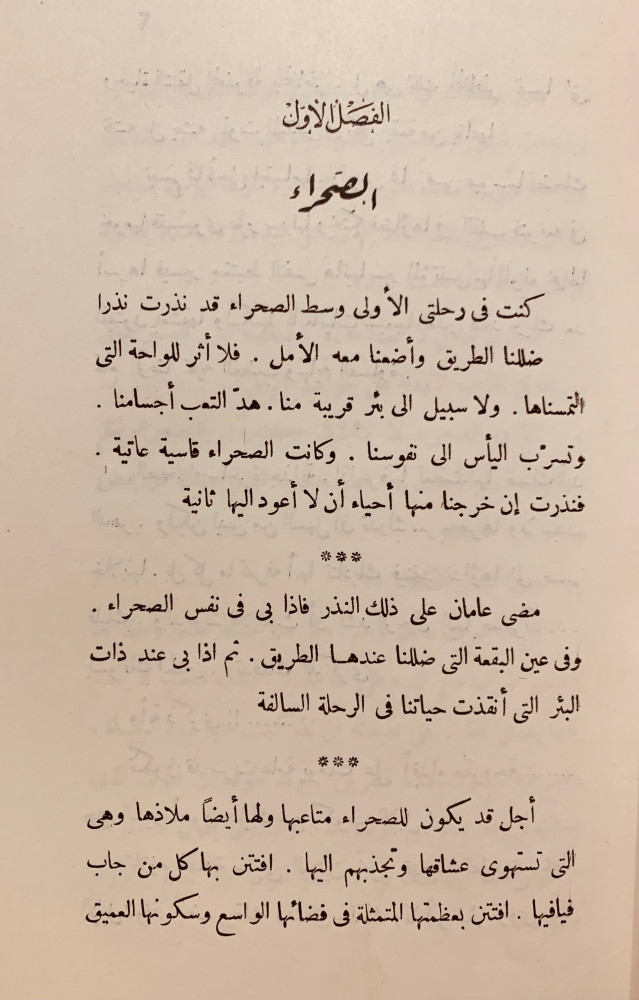 الفصل الأول
الصحراء
كنت فى رحلتى الأولى وسط الصحراء قد نذرت نذرا
ضللنا الطريق وأضعنا معه الأمل . فلا أثر للواحة التى
التمسناها . ولا سبيل الى بئر قريبة منا . هدّ التعب أجسامنا .
وتسرّب اليأس الى نفوسنا . وكانت الصحراء قاسية عاتية .
فنذرت إن خرجنا منها أحياء أن لا أعود اليها ثانية
***
مضى عامان على ذلك النذر فاذا بى فى نفس الصحراء .
وفى عين البقعة التى ضللنا عندها الطريق . ثم اذا بى عند ذات
البئر التى أنقذت حياتنا فى الرحلة السالفة
***
أجل قد يكون للصحراء متاعبها ولها أيضاً ملاذها وهى
التى تستهوى عشاقها وتجذبهم اليها . افتتن بها كل من جاب
فيافيها . افتتن بعظمتها المتمثلة فى فضائها الواسع وسكونها العميق